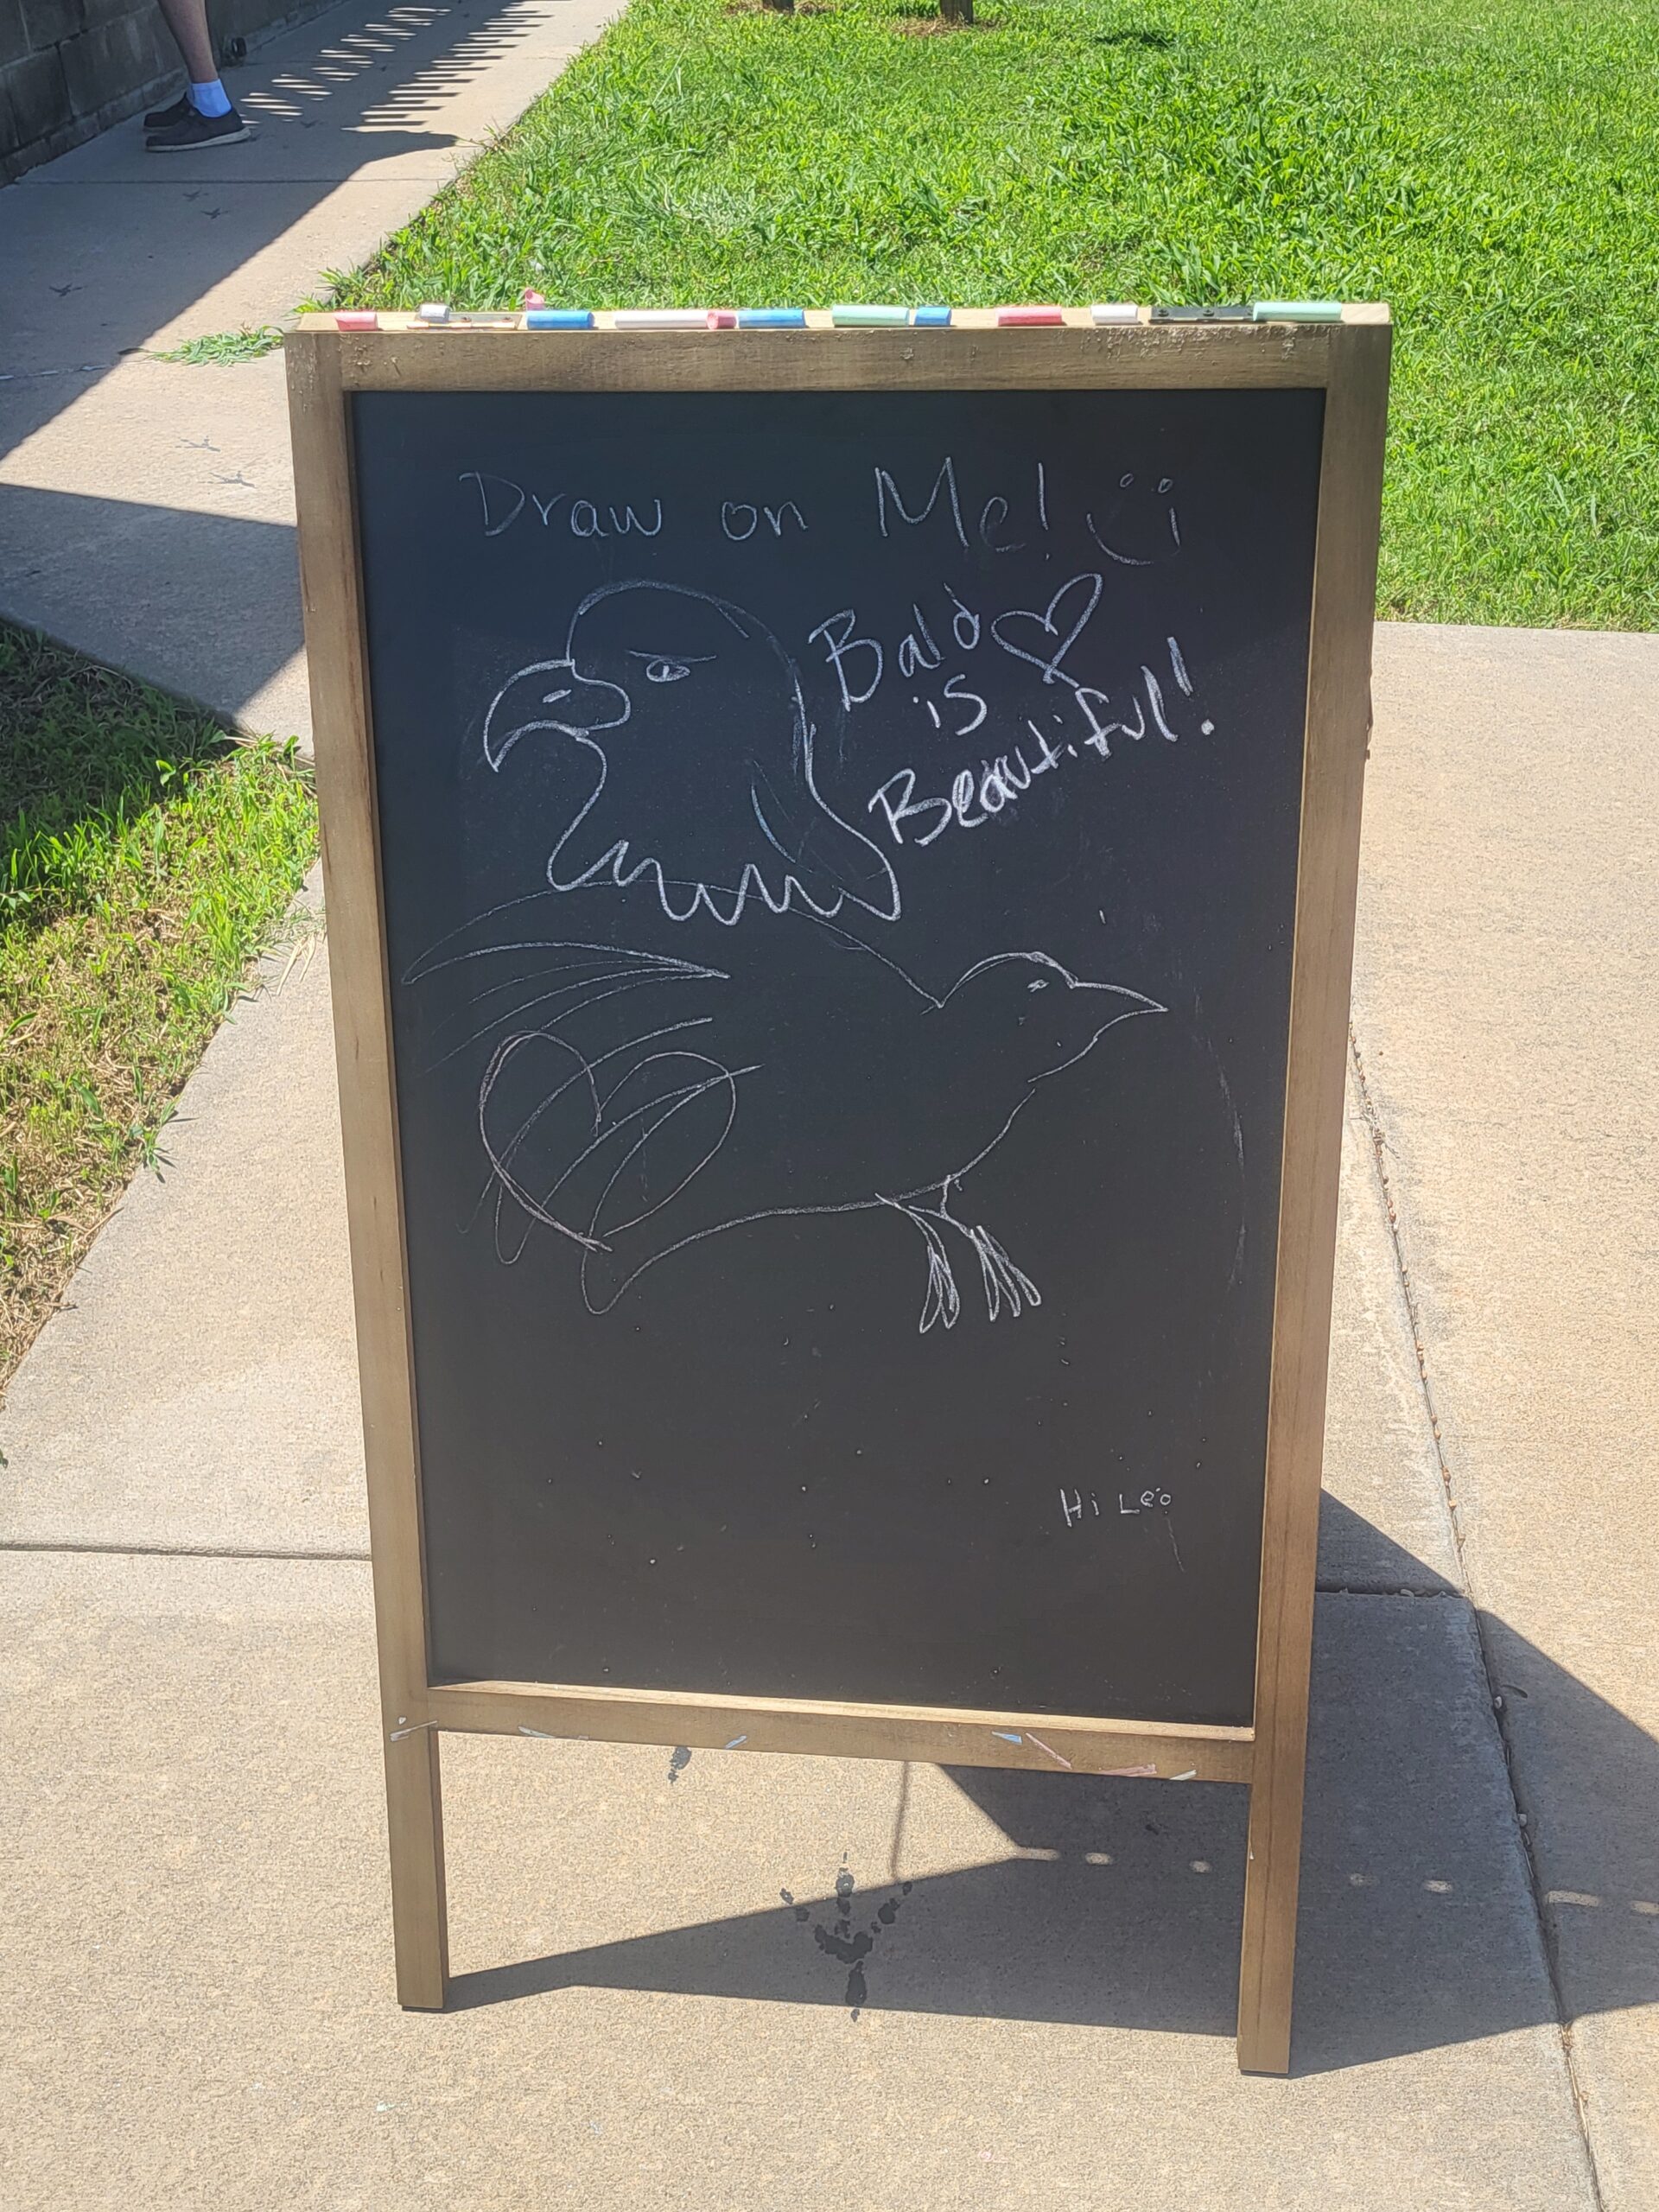 Draw on Me! :)
Bald ♡
is
Beautiful!
Hi Leo